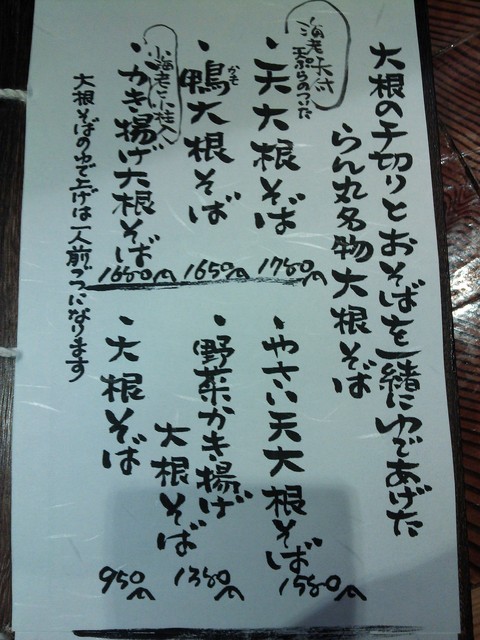 大根の千切りとおそばを一緒にゆであげた
らん丸名物大根そば
海老天付
天ぷらのついた
・天大根そば
1750円
かも
・鴨大根そば
1650円
小海老と小柱入
・かき揚げ大根そば
1650円
・やさい天大根そば
1550円
・野菜かき揚げ
大根そば
1350円
・大根そば
950円
大根そばのゆで上げは一人前づつになります